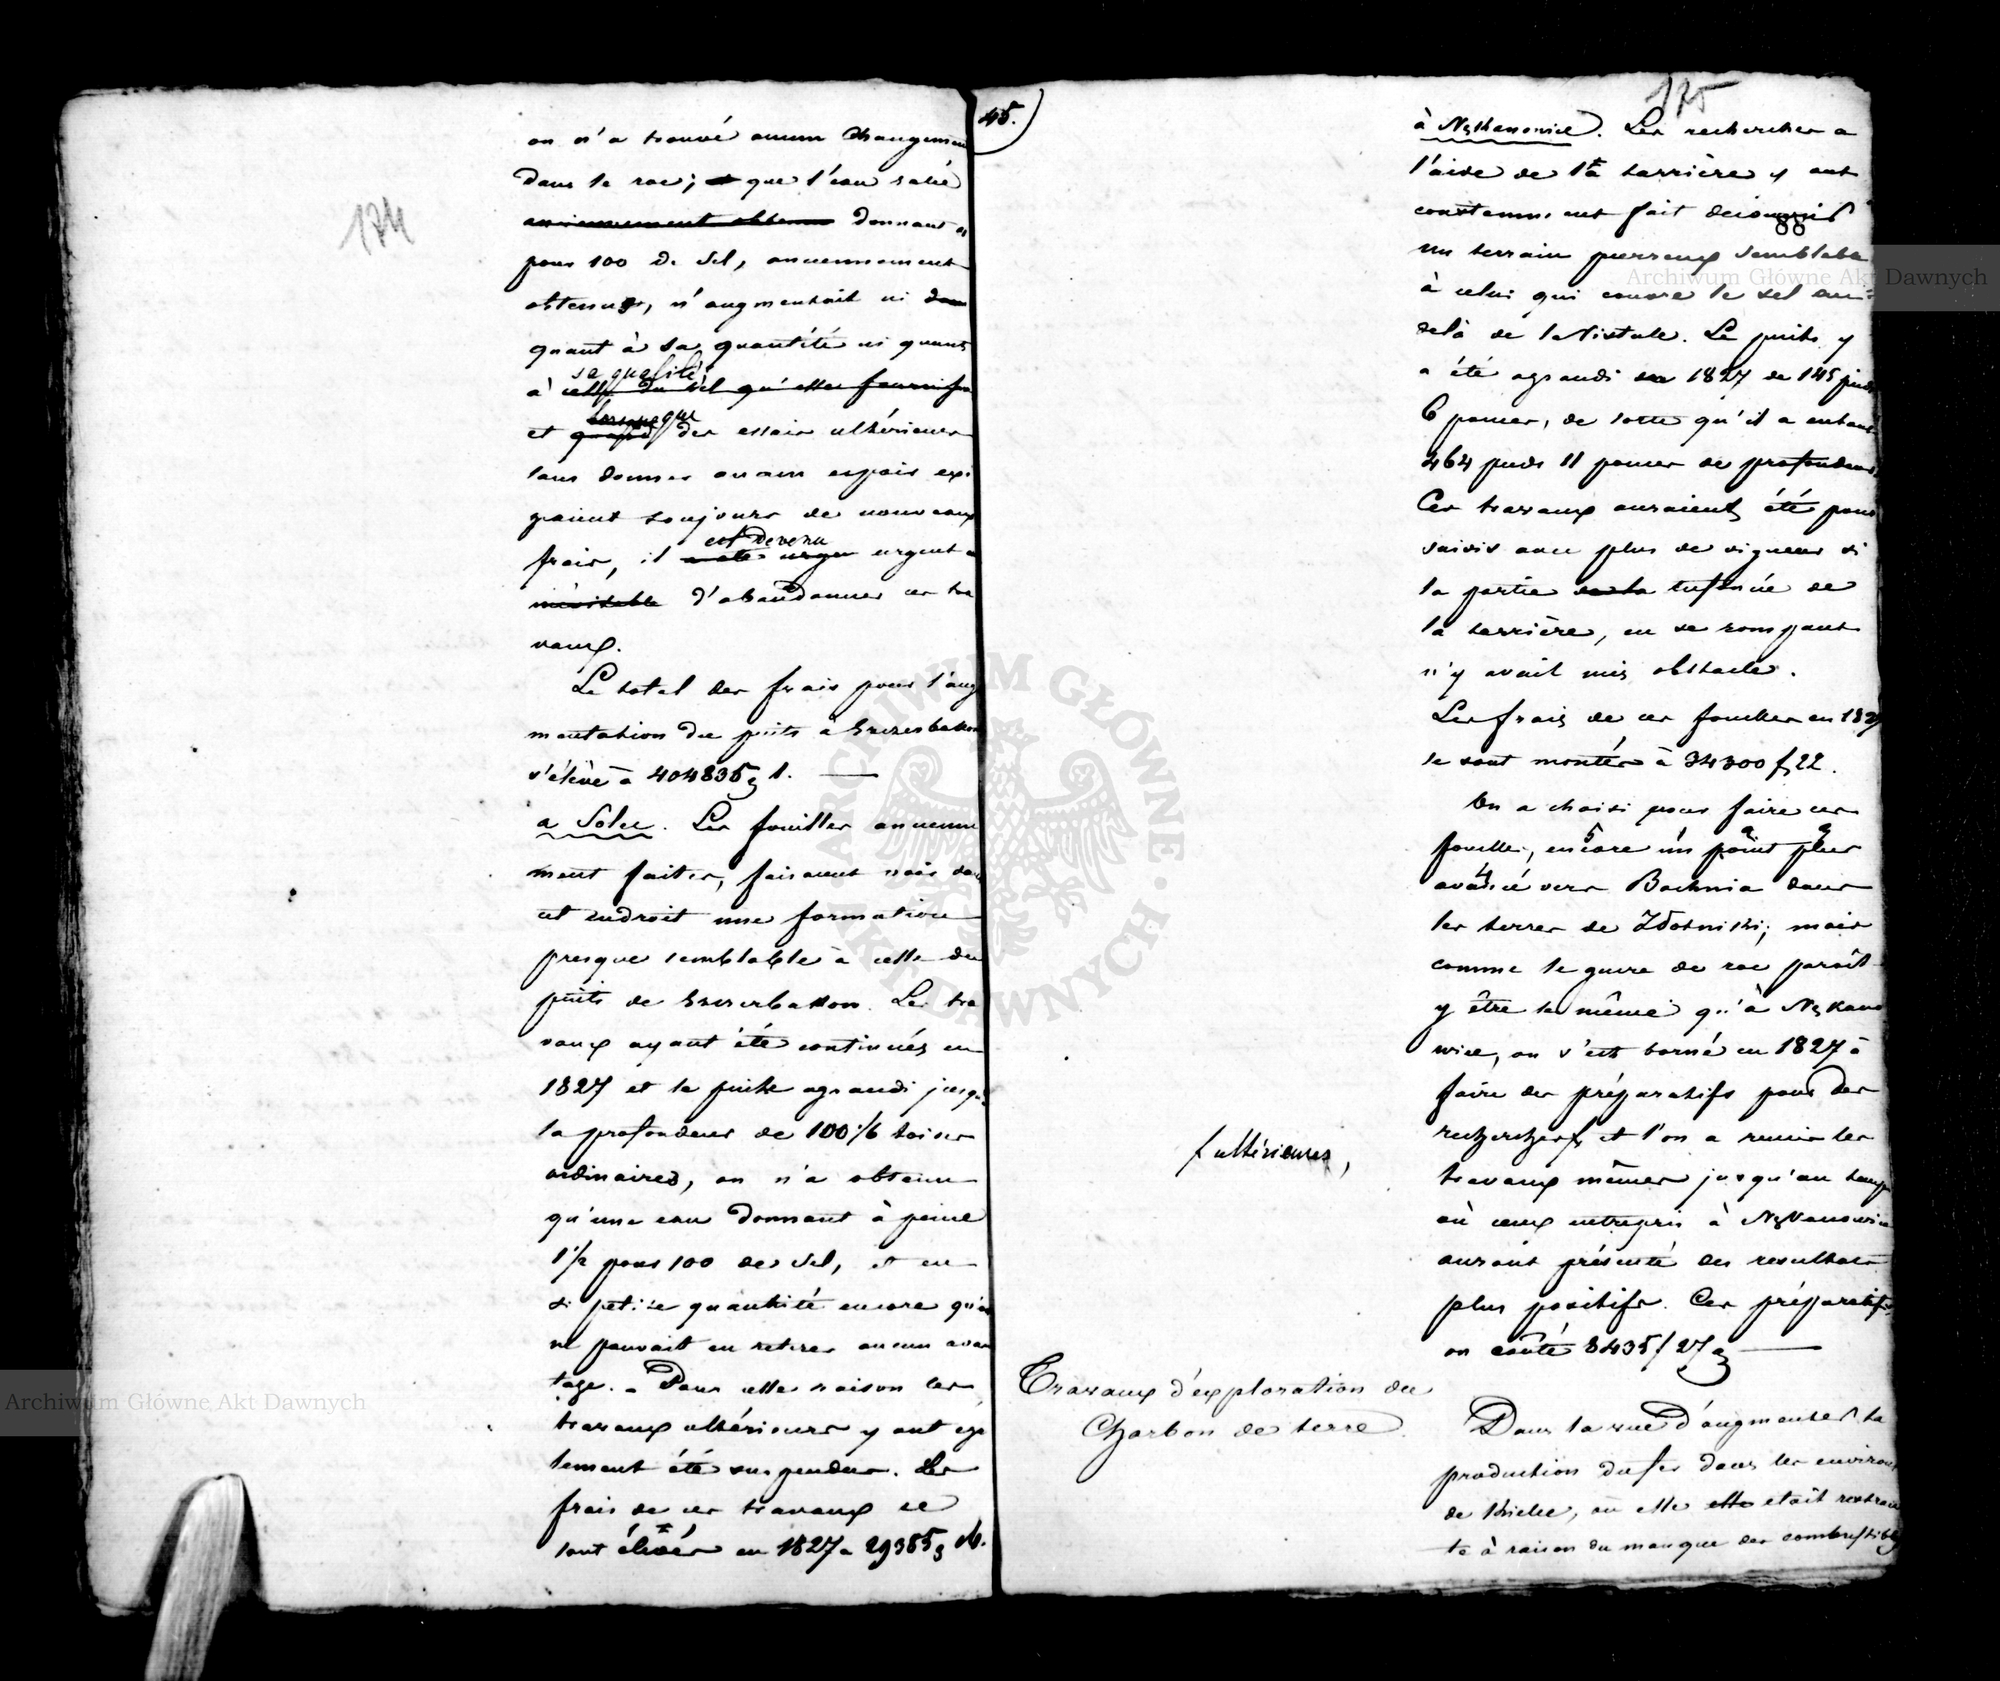 174
on n'a trouvé aucun changemen
dans le roc; et que l'eau salée
anciennement obtenue donnant
pour 100 de sel, anciennement
obtenue, n'augmentait ni dans
quant à sa quantité ni quant
sa qualité,
à celle du sel qu'elle fournissa
lorsque que
et quand des essais ultérieurs
sans donner aucun espoir exi
geaient toujours de nouveaux
est devenu
frais, il a été urgen urgent
inévitable d'abandonner ces tra
vaux.
Le total des frais pour l'aug
mentation du puits à Szczerbakow
s'élève à 404835 1.
a Solec. Les fouilles ancienne
ment faites, faisaient voir dans
cet endroit une formation
presque semblable à celle du
puits de Szczerbakow. Les tra
vaux ayant été continués en
1827 et le puits agrandi jusqu'à
la profondeur de 100 1/6 toises
ordinaires, on n'a obtenu
qu'une eau donnant à peine
1 1/2 pour 100 de sel, et en
si petite quantité encore qu'on
ne pouvait en retirer aucun avan
tage. Pour cette raison les
travaux ultérieurs y ont éga
lement été suspendus. Les
frais de ces travaux se
sont élevés en 1827 a 29385
45.
175
à Nękanowice. Les recherches a
l'aide de la tarrière y ont
constamment fait découvrir
88
un terrain pierreux semblable
à celui qui couvre le sel au
delà de la Vistule. Le puits y
a été agrandi en 1827 de 145 pieds
6 pouces, de sorte qu'il a en tout
464 pieds 11 pouces de profondeur.
Ces travaux auraient été pour
suivis avec plus de vigueur si
la partie de la inférieure de
la tarrière, en se rompant
n'y avait mis obstacle.
Les frais de ces fouilles en 1827
se sont montés à 34300 f 22.
On a choisi pour faire ces
fouilles, encore un point plus
avancé vers Bochnia dans
les terres de Zdotniki; mais
comme le genre de roc paroît
y être le même qu'à Nękano
wice, on s'est borné en 1827 à
faire des préparatifs pour des
recherches et l'on a remis les
f ultérieures,
travaux mêmes jusqu'au temps
où ceux entrepris à Nękanowice
auront présenté des resultats
plus positifs. Ces préparatifs
on coûté 8435/27
Travaux d'exploration du
Charbon de terre.
Dans la vue d'augmenter la
production du fer dans les environs
de Kielce, où elle elle etait restrain
te à raison du manque des combustibles
ARCHIWUM GŁÓWNE AKT DAWNYCH
Archiwum Główne Akt Dawnych
Archiwum Główne Akt Dawnych